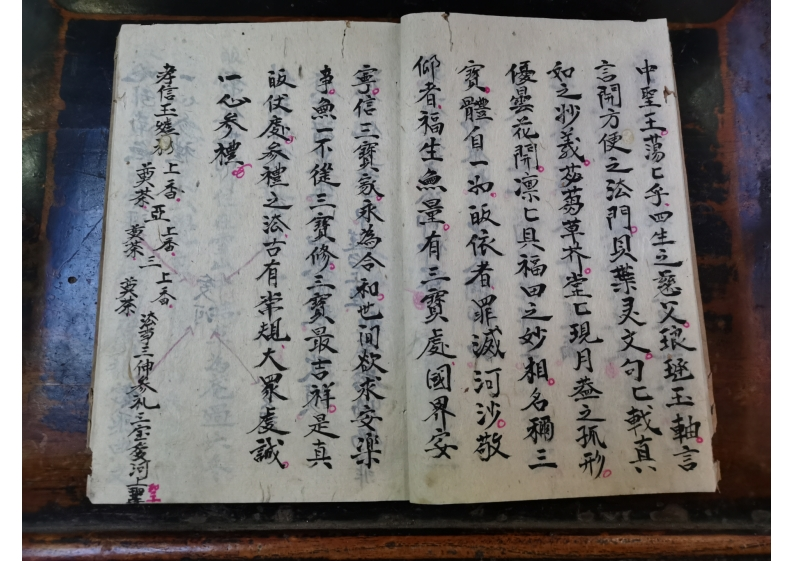 中聖王蕩匕乎四生之慈父琅琊玉軸言
言開方便之法門貝葉灵文句匕載真
如之妙義苾蒭草芥堂匕現月盖之孤形
優曇花開凛匕具福田之妙相名稱三
寶體自一如皈依者罪滅河沙敬
仰者福生無量有三寶處國界安
寧信三寶家永為合和世间欲求安樂
事無一不從三寶修三寶最吉祥是真
皈伏處参禮之法古有常規大眾虔誠
一心参禮
孝信王 上香
奠茶 亞上香
奠茶 三上香
奠茶
法事三伸参礼三宝